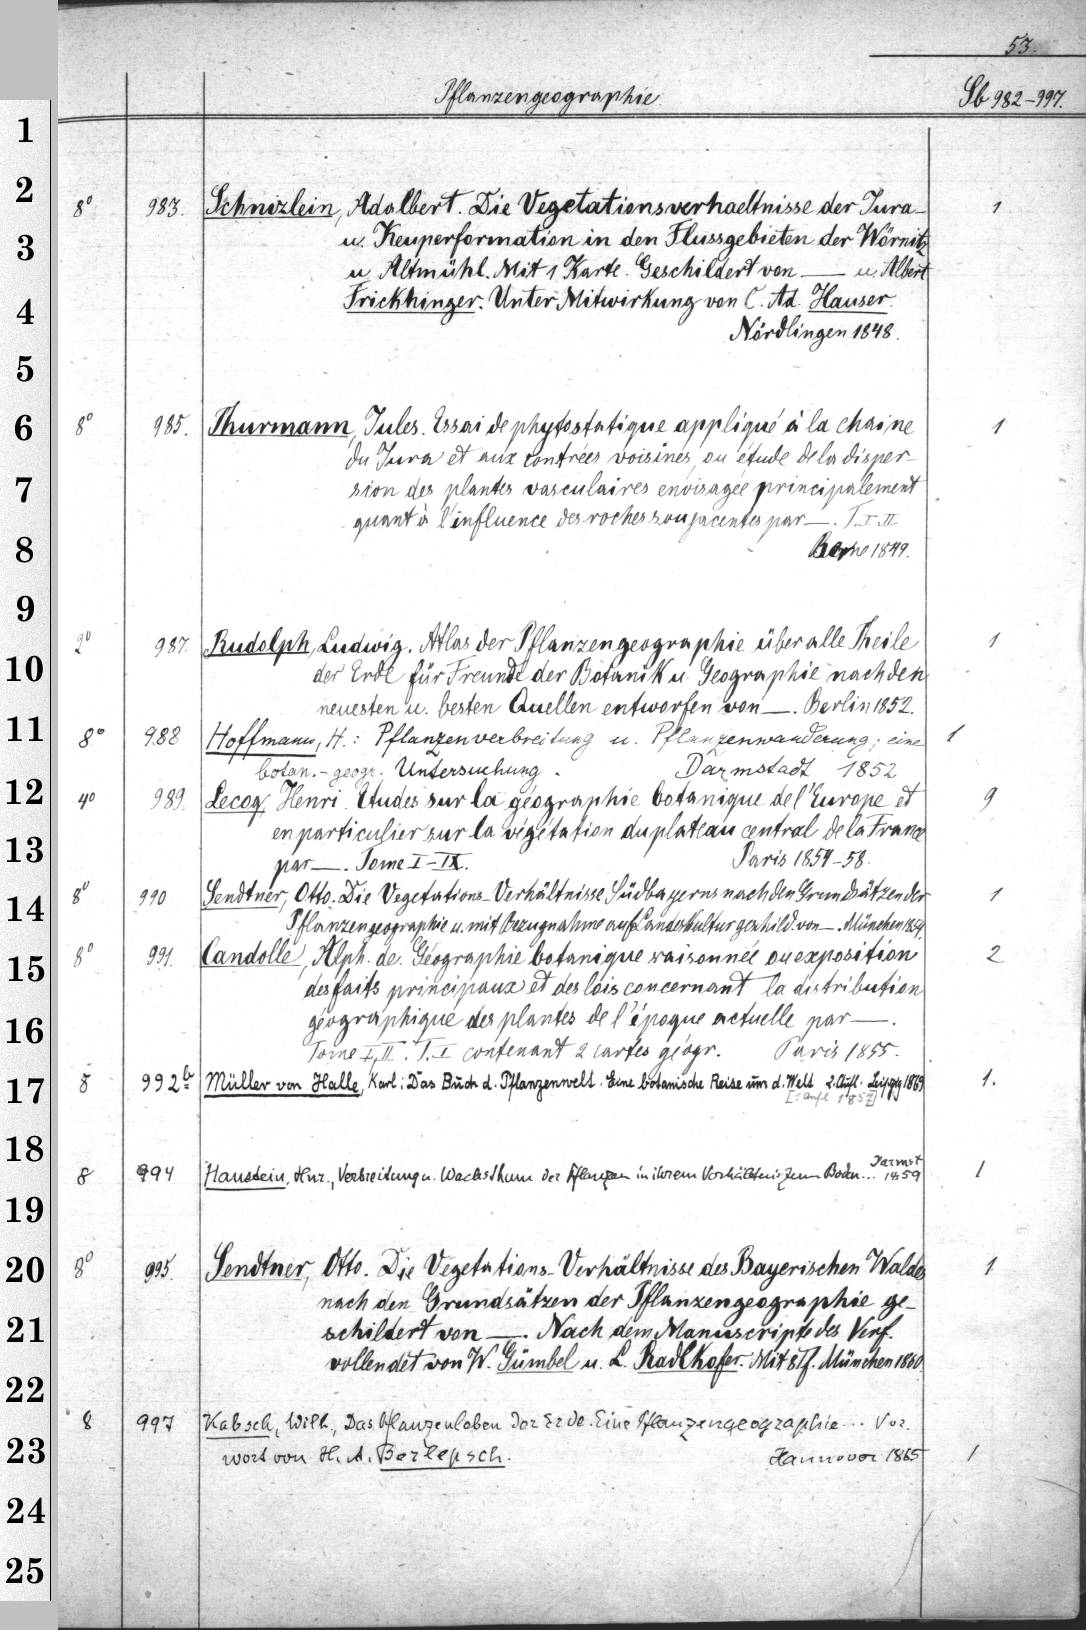 53.
Pflanzengeographie
Sb 982-997.
1
2
8° 983. Schnizlein, Adalbert. Die Vegetationsverhaeltnisse der Jura- 1
3
u. Keuperformation in den Flussgebieten der Wörnitz
u. Altmühl. Mit 1 Karte. Geschildert von — u. Albert
4
Frickhinger. Unter Mitwirkung von C. Ad. Hauser.
Nördlingen 1848.
5
6
8° 985. Thurmann, Jules. Essai de phytostatique appliqué à la chaine 1
du Jura et aux contrées voisines, ou étude de la disper-
7
sion des plantes vasculaires envisagée principalement
quant à l'influence des roches soujacentes par —. T. I. II
8
Berne 1849.
9
2° 987. Rudolph, Ludwig. Atlas der Pflanzengeographie über alle Theile 1
10
der Erde für Freunde der Botanik u. Geographie nach den
neuesten u. besten Quellen entworfen von —. Berlin 1852.
11
8° 988 Hoffmann, H.: Pflanzenverbreitung u. Pflanzenwanderung; eine 1
botan.-geogr. Untersuchung. Darmstadt 1852
12
4° 989. Lecoq, Henri. Etudes sur la géographie botanique de l'Europe et 9
en particulier sur la végétation du plateau central de la France
13
par —. Tome I-IX. Paris 1854-58.
14
8° 990 Sendtner, Otto. Die Vegetations-Verhältnisse Südbayerns nach den Grundsätzen der 1
Pflanzengeographie u. mit Bezugnahme auf Landeskultur geschild. von —. München 1854.
15
8° 991. Candolle, Alph. de. Géographie botanique raisonnée ou exposition 2
des faits principaux et des lois concernant la distribution
16
géographique des plantes de l'époque actuelle par —.
Tome I, II. T. I contenant 2 cartes géogr. Paris 1855.
17
8 992b Müller von Halle, Karl: Das Buch d. Pflanzenwelt. Eine botanische Reise um d. Welt 2. Aufl. Leipzig 1869 1.
[1 Aufl 1857]
18
8 994 Hanstein, Hnr., Verbreitung u. Wachsthum der Pflanzen in ihrem Verhältnis zum Boden... Darmst 1859 1
19
20
8° 995. Sendtner, Otto. Die Vegetations-Verhältnisse des Bayerischen Waldes 1
nach den Grundsätzen der Pflanzengeographie ge-
21
schildert von —. Nach dem Manuscripte des Verf.
vollendet von W. Gümbel u. L. Radlkofer. Mit 8 Tf. München 1860
22
8 997 Kabsch, Wilh., Das Pflanzenleben der Erde. Eine Pflanzengeographie... Vor-
23
wort von H. A. Berlepsch. Hannover 1865 1
24
25